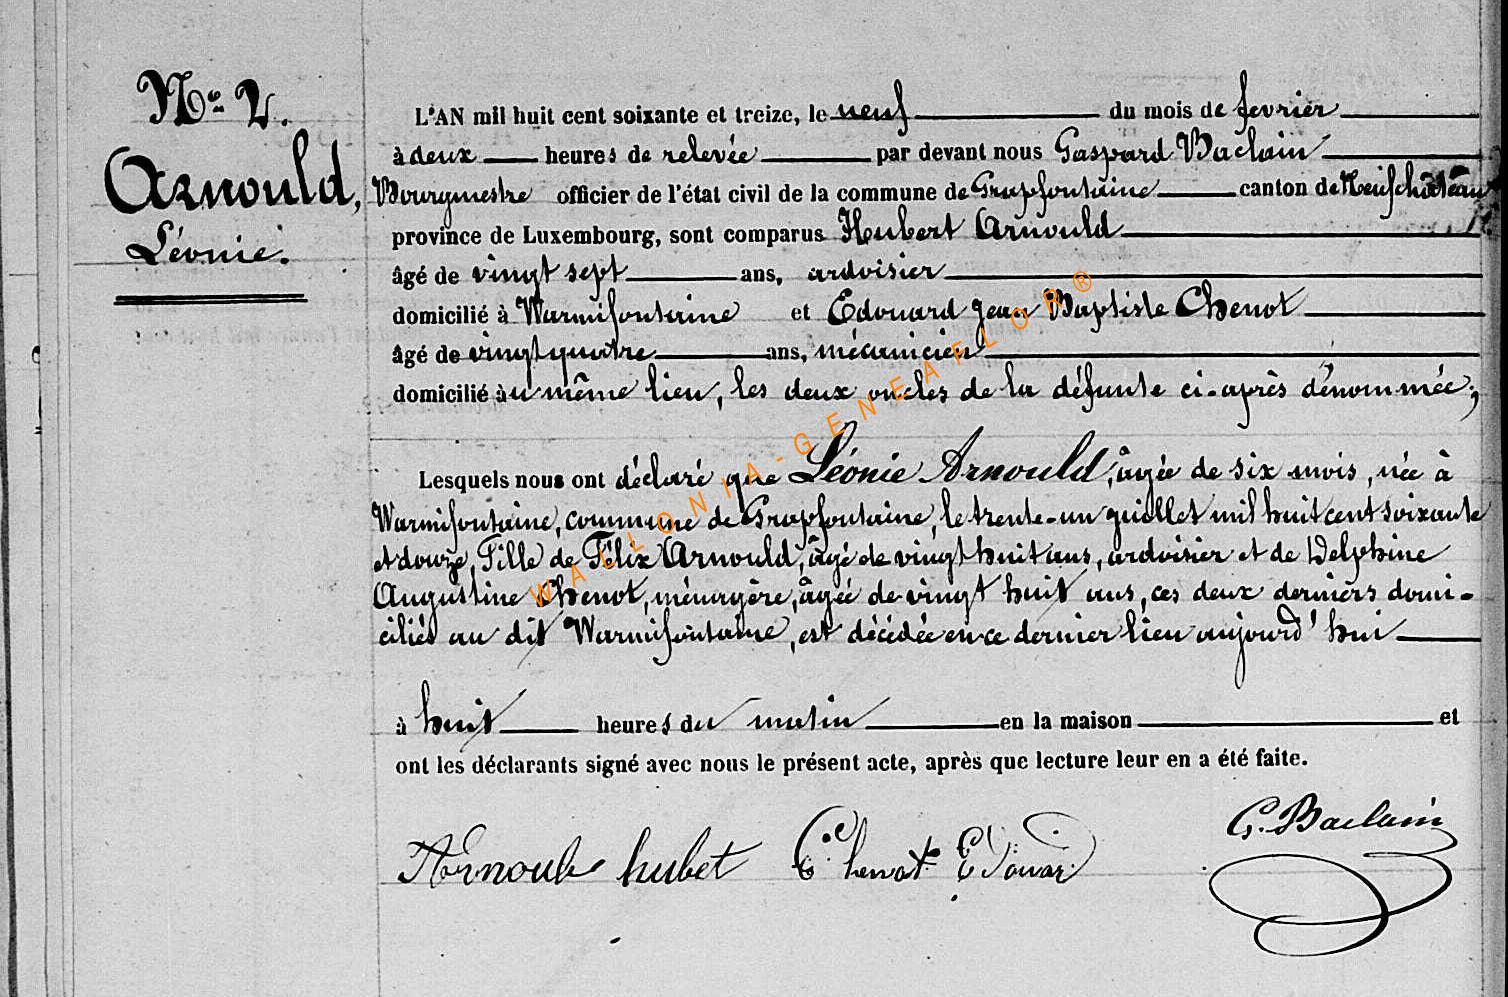 No 2.
Arnould,
Léonie.
L'AN mil huit cent soixante et treize, le neuf du mois de fevrier
à deux heures de relevée par devant nous Gaspard Baclain
Bourgmestre officier de l'état civil de la commune de Grapfontaine canton de Neufchâteau
province de Luxembourg, sont comparus Hubert Arnould
âgé de vingt sept ans, ardoisier
domicilié à Warmifontaine et Edouard Jean Baptiste Chenot
âgé de vingt quatre ans, mécanicien
domicilié au même lieu, les deux oncles de la défunte ci-après dénommée;
Lesquels nous ont déclaré que Léonie Arnould, âgée de six mois, née à
Warmifontaine, commune de Grapfontaine, le trente-un juillet mil huit cent soixante
et douze, Fille de Félix Arnould, âgé de vingt huit ans, ardoisier et de Delphine
Augustine Chenot, ménagère, âgée de vingt huit ans, ces deux derniers domi-
ciliés au dit Warmifontaine, est décédée en ce dernier lieu aujourd'hui
à huit heures du matin en la maison et
ont les déclarants signé avec nous le présent acte, après que lecture leur en a été faite.
Arnould hubet Chenot Edouar G. Baclain
WALLONIA-GENEAFLOR®